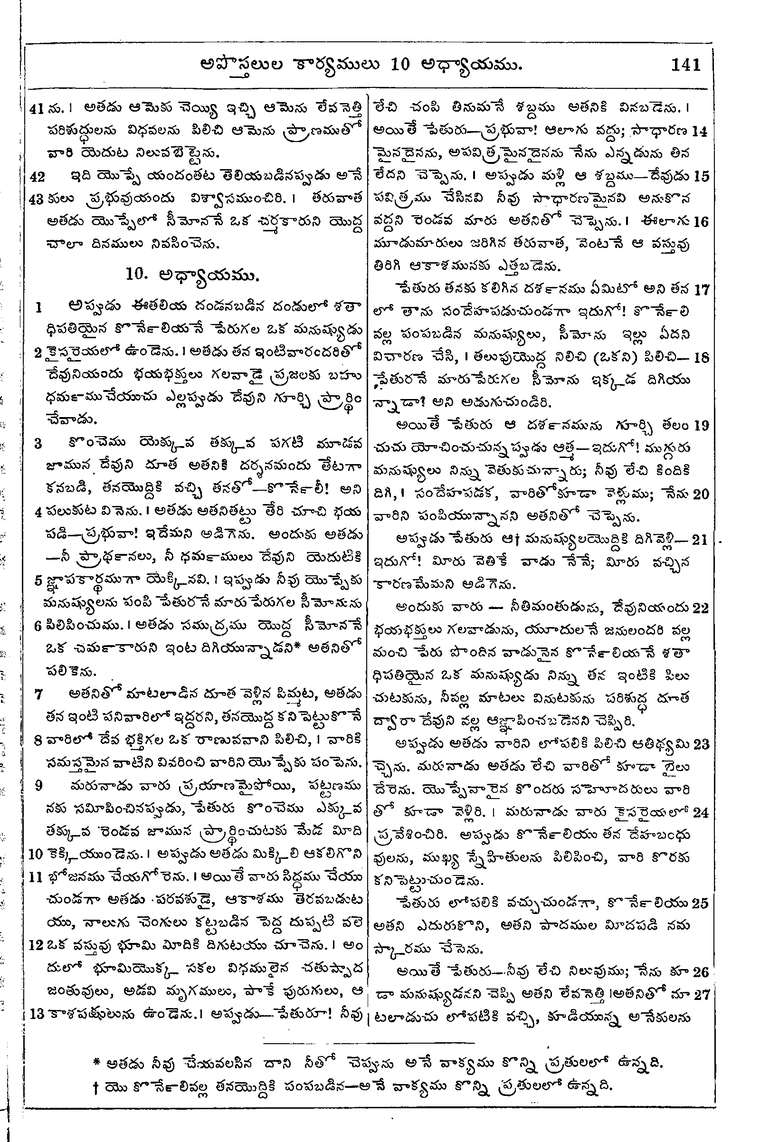 అపొస్తలుల కార్యములు 10 అధ్యాయము. 141
41 ను. । అతడు ఆమెకు చెయ్యి ఇచ్చి ఆమెను లేవనెత్తి
పరిశుద్ధులను విధవలను పిలిచి ఆమెను ప్రాణముతో
వారి యెదుట నిలువబెట్టెను.
42 ఇది యొప్పే యందంతట తెలియబడినప్పుడు అనే
43 కులు ప్రభువుయందు విశ్వాసముంచిరి. । తరువాత
అతడు యొప్పేలో సీమోననే ఒక చర్మకారుని యొద్ద
చాలా దినములు నివసించెను.
10. అధ్యాయము.
1 అప్పుడు ఈతలియ దండనబడిన దండులో శతా
ధిపతియైన కొర్నేలియనే పేరుగల ఒక మనుష్యుడు
2 కైసరైయలో ఉండెను. । అతడు తన ఇంటివారందరితో
దేవునియందు భయభక్తులు గలవాడై ప్రజలకు బహు
ధర్మముచేయుచు ఎల్లప్పుడు దేవుని గూర్చి ప్రార్థిం
చేవాడు.
3 కొంచెము యెక్కువ తక్కువ పగటి మూడవ
జామున దేవుని దూత అతనికి దర్శనమందు తేటగా
కనబడి, తనయొద్దికి వచ్చి తనతో—కొర్నేలీ! అని
4 పలుకుట వినెను. । అతడు అతనితట్టు తేరి చూచి భయ
పడి—ప్రభువా! ఇదేమని అడిగెను. అందుకు అతడు
—నీ ప్రార్థనలు, నీ ధర్మములు దేవుని యెదుటికి
5 జ్ఞాపకార్థముగా యెక్కినవి. । ఇప్పుడు నీవు యొప్పేకు
మనుష్యులను పంపి పేతురనే మారుపేరుగల సీమోనును
6 పిలిపించుము. । అతడు సముద్రము యొద్ద సీమోననే
ఒక చర్మకారుని ఇంట దిగియున్నాడని* అతనితో
పలికెను.
7 అతనితో మాటలాడిన దూత వెళ్లిన పిమ్మట, అతడు
తన ఇంటి పనివారిలో ఇద్దరని, తనయొద్ద కనిపెట్టుకొనే
8 వారిలో దేవ భక్తిగల ఒక రాణువవాని పిలిచి, । వారికి
సమస్తమైన వాటిని వివరించి వారిని యొప్పేకు పంపెను.
9 మరునాడు వారు ప్రయాణమైపోయి, పట్టణము
నకు సమీపించినప్పుడు, పేతురు కొంచెము ఎక్కువ
తక్కువ రెండవ జామున ప్రార్థించుటకు మేడ మీది
10 కెక్కియుండెను. । అప్పుడు అతడు మిక్కిలి ఆకలిగొని
11 భోజనము చేయగోరెను. । అయితే వారు సిద్ధము చేయు
చుండగా అతడు పరవశుడై, ఆకాశము తెరవబడుట
యు, నాలుగు చెంగులు కట్టబడిన పెద్ద దుప్పటి వలె
12 ఒక వస్తువు భూమి మీదికి దిగుటయు చూచెను. । అం
దులో భూమియొక్క సకల విధములైన చతుష్పాద
జంతువులు, అడవి మృగములు, పాకే పురుగులు, ఆ
13 కాశపక్షులును ఉండెను. । అప్పుడు—పేతురూ! నీవు
లేచి చంపి తినుమనే శబ్దము అతనికి వినబడెను. ।
అయితే పేతురు—ప్రభువా! ఆలాగు వద్దు; సాధారణ 14
మైనదైనను, అపవిత్రమైనదైనను నేను ఎన్నడును తిన
లేదని చెప్పెను. । అప్పుడు మళ్లి ఆ శబ్దము—దేవుడు 15
పవిత్రము చేసినవి నీవు సాధారణమైనవి అనుకొన
వద్దని రెండవ మారు అతనితో చెప్పెను. । ఈలాగు 16
మూడుమారులు జరిగిన తరువాత, వెంటనే ఆ వస్తువు
తిరిగి ఆకాశమునకు ఎత్తబడెను.
పేతురు తనకు కలిగిన దర్శనము ఏమిటో అని తన 17
లో తాను సందేహపడుచుండగా ఇదుగో! కొర్నేలి
వల్ల పంపబడిన మనుష్యులు, సీమోను ఇల్లు ఏదని
విచారణ చేసి, । తలుపుయొద్ద నిలిచి (ఒకని) పిలిచి— 18
పేతురనే మారుపేరుగల సీమోను ఇక్కడ దిగియు
న్నాడా? అని అడుగుచుండిరి.
అయితే పేతురు ఆ దర్శనమును గూర్చి తలం 19
చుచు యోచించుచున్నప్పుడు ఆత్మ—ఇదుగో! ముగ్గురు
మనుష్యులు నిన్ను వెతుకుచున్నారు; నీవు లేచి కిందికి
దిగి, । సందేహపడక, వారితోకూడా వెళ్లుము; నేను 20
వారిని పంపియున్నానని అతనితో చెప్పెను.
అప్పుడు పేతురు ఆ† మనుష్యులయొద్దికి దిగివెళ్లి— 21
ఇదుగో! మీరు వెతికే వాడు నేనే; మీరు వచ్చిన
కారణమేమని అడిగెను.
అందుకు వారు — నీతిమంతుడును, దేవునియందు 22
భయభక్తులు గలవాడును, యూదులనే జనులందరి వల్ల
మంచి పేరు పొందిన వాడునైన కొర్నేలియనే శతా
ధిపతియైన ఒక మనుష్యుడు నిన్ను తన ఇంటికి పిలు
చుటకును, నీవల్ల మాటలు వినుటకును పరిశుద్ధ దూత
ద్వారా దేవుని వల్ల ఆజ్ఞాపించబడెనని చెప్పిరి.
అప్పుడు అతడు వారిని లోపలికి పిలిచి ఆతిథ్యమి 23
చ్చెను. మరునాడు అతడు లేచి వారితో కూడా బైలు
దేరెను. యొప్పేవారైన కొందరు సహోదరులు వారి
తో కూడా వెళ్లిరి. । మరునాడు వారు కైసరైయలో 24
ప్రవేశించిరి. అప్పుడు కొర్నేలియు తన దేహబంధు
వులను, ముఖ్య స్నేహితులను పిలిపించి, వారి కొరకు
కనిపెట్టుచుండెను.
పేతురు లోపలికి వచ్చుచుండగా, కొర్నేలియు 25
అతని ఎదురుకొని, అతని పాదముల మీదపడి నమ
స్కారము చేసెను.
అయితే పేతురు—నీవు లేచి నిలువుము; నేను కూ 26
డా మనుష్యుడనని చెప్పి అతని లేవనెత్తి ।అతనితో మా 27
టలాడుచు లోపటికి వచ్చి, కూడియున్న అనేకులను
* అతడు నీవు చేయవలసిన దాని నీతో చెప్పును అనే వాక్యము కొన్ని ప్రతులలో ఉన్నది.
† యొ కొర్నేలివల్ల తనయొద్దికి పంపబడిన—అనే వాక్యము కొన్ని ప్రతులలో ఉన్నది.